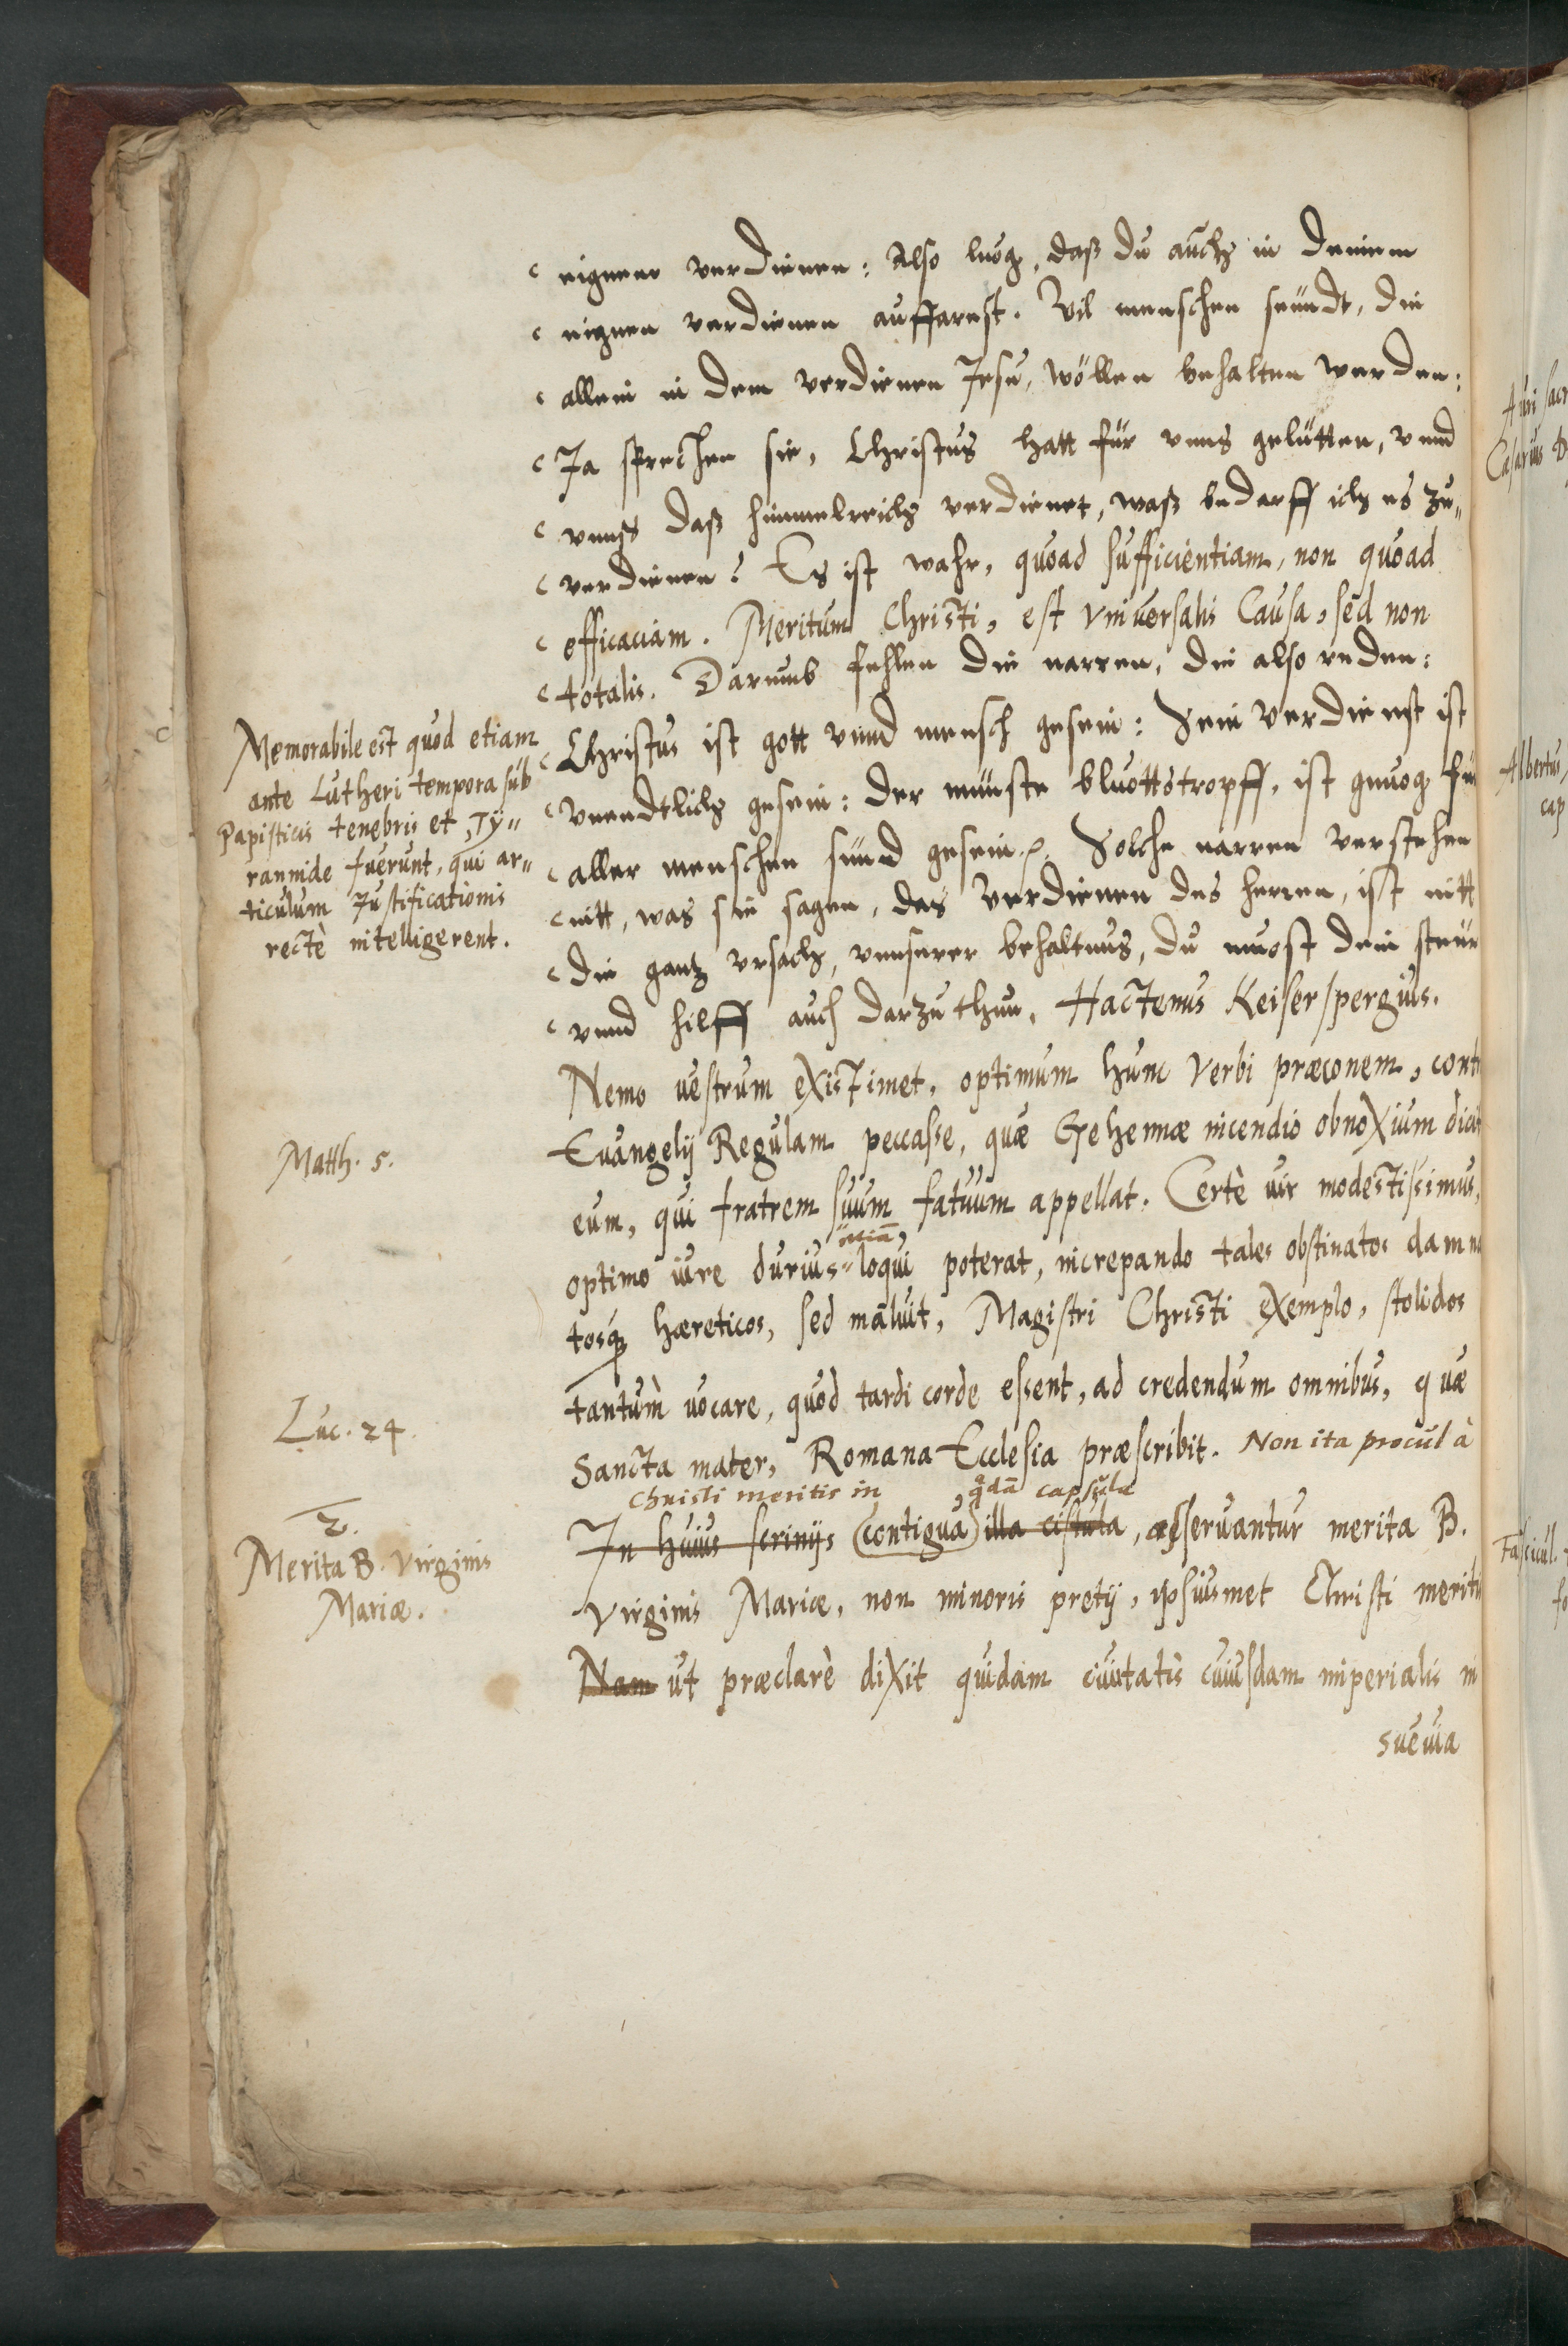 eignem verdienen: Also luog, daß du auch in deinem
eignen verdienen auffarest. Vil menschen seündt, die
allein in dem verdienen Jesu, wöllen behalten werden:
Ja sprechen sie, Christus hatt für vnns gelütten, vnnd
vnnß daß himmelreich verdienet, waß bedarff ich es zu„
verdienen? Es ist wahr, quoad sufficientiam, non quoad
efficaciam. Meritum Christi, est vniuersalis Causa, sed non
totalis. Darumb fehlen die narren, die also reden:
Christus ist gott vnnd mensch gesein: Sein verdienst ist
vnendtlich gesein: der münste bluottstropff, ist gnuog für
aller menschen sünd gesein. Solche narren verstehen
nitt, was sie sagen, das verdienen des herren, ist nitt
die gantz vrsach, vnnserer behaltnus, du muost dein steür
vnnd hilff auch darzu thun. Hactenus Keiserspergius.
Nemo uestrum existimet, optimum hunc verbi præconem, cont
Euangelij Regulam peccasse, quæ Gehennæ incendio obnoxium dici
eum, qui fratrem suum fatuum appellat. Certè uir modestissimus,
optimo iure durius etiã, loqui poterat, increpando tales obstinatos damna
tosq́ hæreticos, sed māluit, Magistri Christi exemplo, stolidos
tantum̀ uocare, quod tardi corde essent, ad credendum omnibus, quæ
Sancta mater, Romana Ecclesia præscribit. Non ita procul à
Christi meritis in q̃dã capsula
In huius scrinijs (contigua) illa cistula, asseruantur merita B.
Virginis Mariæ, non minoris pretij, ipsiusmet Christi meritis
Nam ut præclarè dixit quidam ciuitatis cuiusdam imperialis in
sueuia
Memorabile est quod etiam
ante Lutheri tempora sub
Papisticis tenebris et Tÿ„
rannide fuerunt, qui ar„
ticulum Justificationis
rectè intelligerent.
Matth. 5.
Luc. 24.
2.
Merita B. Virginis
Mariæ.
Auri sacr
Cæsarius
Albertus,
cap
Fascicul.
fo